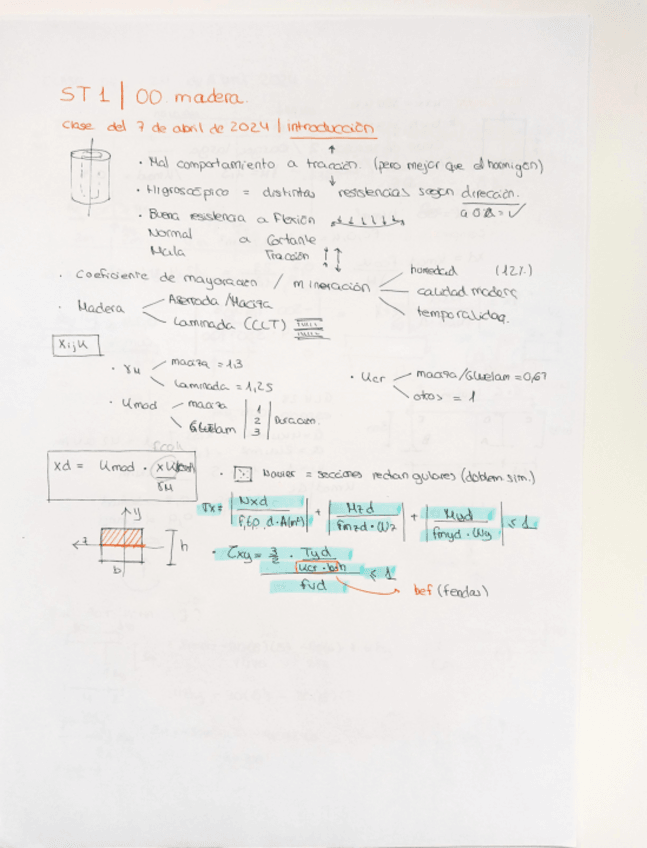 ST 1 | 00 madera.
Clase del 7 de abril de 2024 | introducción
· Mal comportamiento a tracción. (pero mejor que el hormigón)
· Higroscópico = distintas resistencias según dirección.
· Buena resistencia a Flexión
Normal a Cortante
Mala Tracción
· Coeficiente de mayoración / minoración
humedad (12%)
calidad madera
temporalidad.
· Madera
Aserrada / Maciza
Laminada (CLT)
Xijk
· γM
maciza = 1,3
Laminada = 1,25
· Kcr
maciza/Gluelam = 0,67
otros = 1
· Kmod
maciza
Gluelam
1
2
3
Duración.
Xd = Kmod ·
γM
· Navier = secciones rectangulares (doblem sim.)
σx = | Nxd / | + | Mzd / fmzd · Wz | + | Myd / fmyd · Wy | ≤ 1
y
z
h
b
· τxy = 3/2 · Tyd / Kcr · b·h / fvd ≤ 1
bef (fendas)